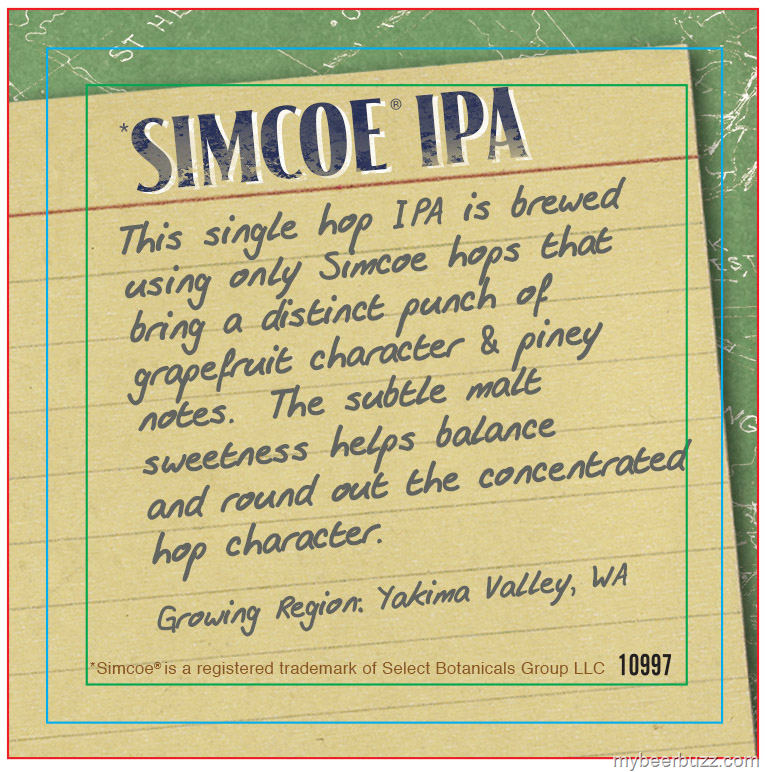 ST HE
*SIMCOE® IPA
This single hop IPA is brewed
using only Simcoe hops that
bring a distinct punch of
grapefruit character & piney
notes. The subtle malt
sweetness helps balance
and round out the concentrated
hop character.
Growing Region: Yakima Valley, WA
*Simcoe® is a registered trademark of Select Botanicals Group LLC 10997
mybeerbuzz.com